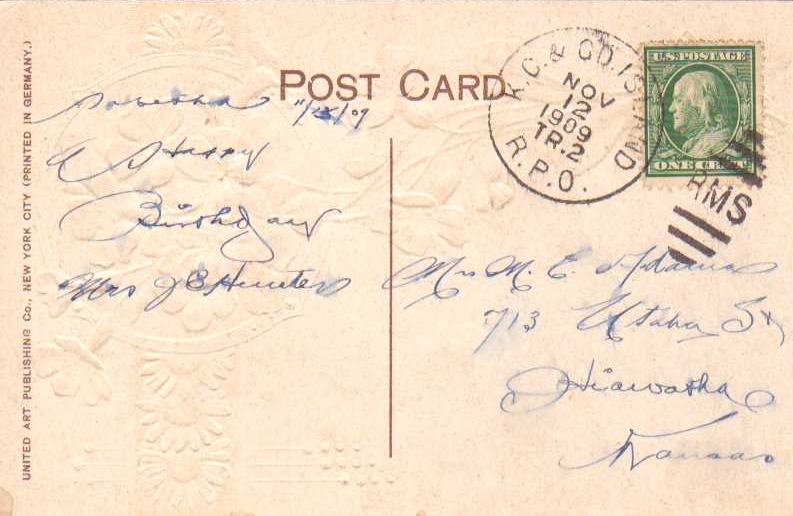 POST CARD
Sabetha 11/12/09
A Happy
Birthday
Mrs J E Hunter
Mrs M. E. Adams
713 Utah St
Hiawatha
Kansas
K.C. & GD. ISLAND
NOV
12
1909
TR.2
R.P.O.
RMS
U.S. POSTAGE
ONE CENT
UNITED ART PUBLISHING Co., NEW YORK CITY (PRINTED IN GERMANY.)